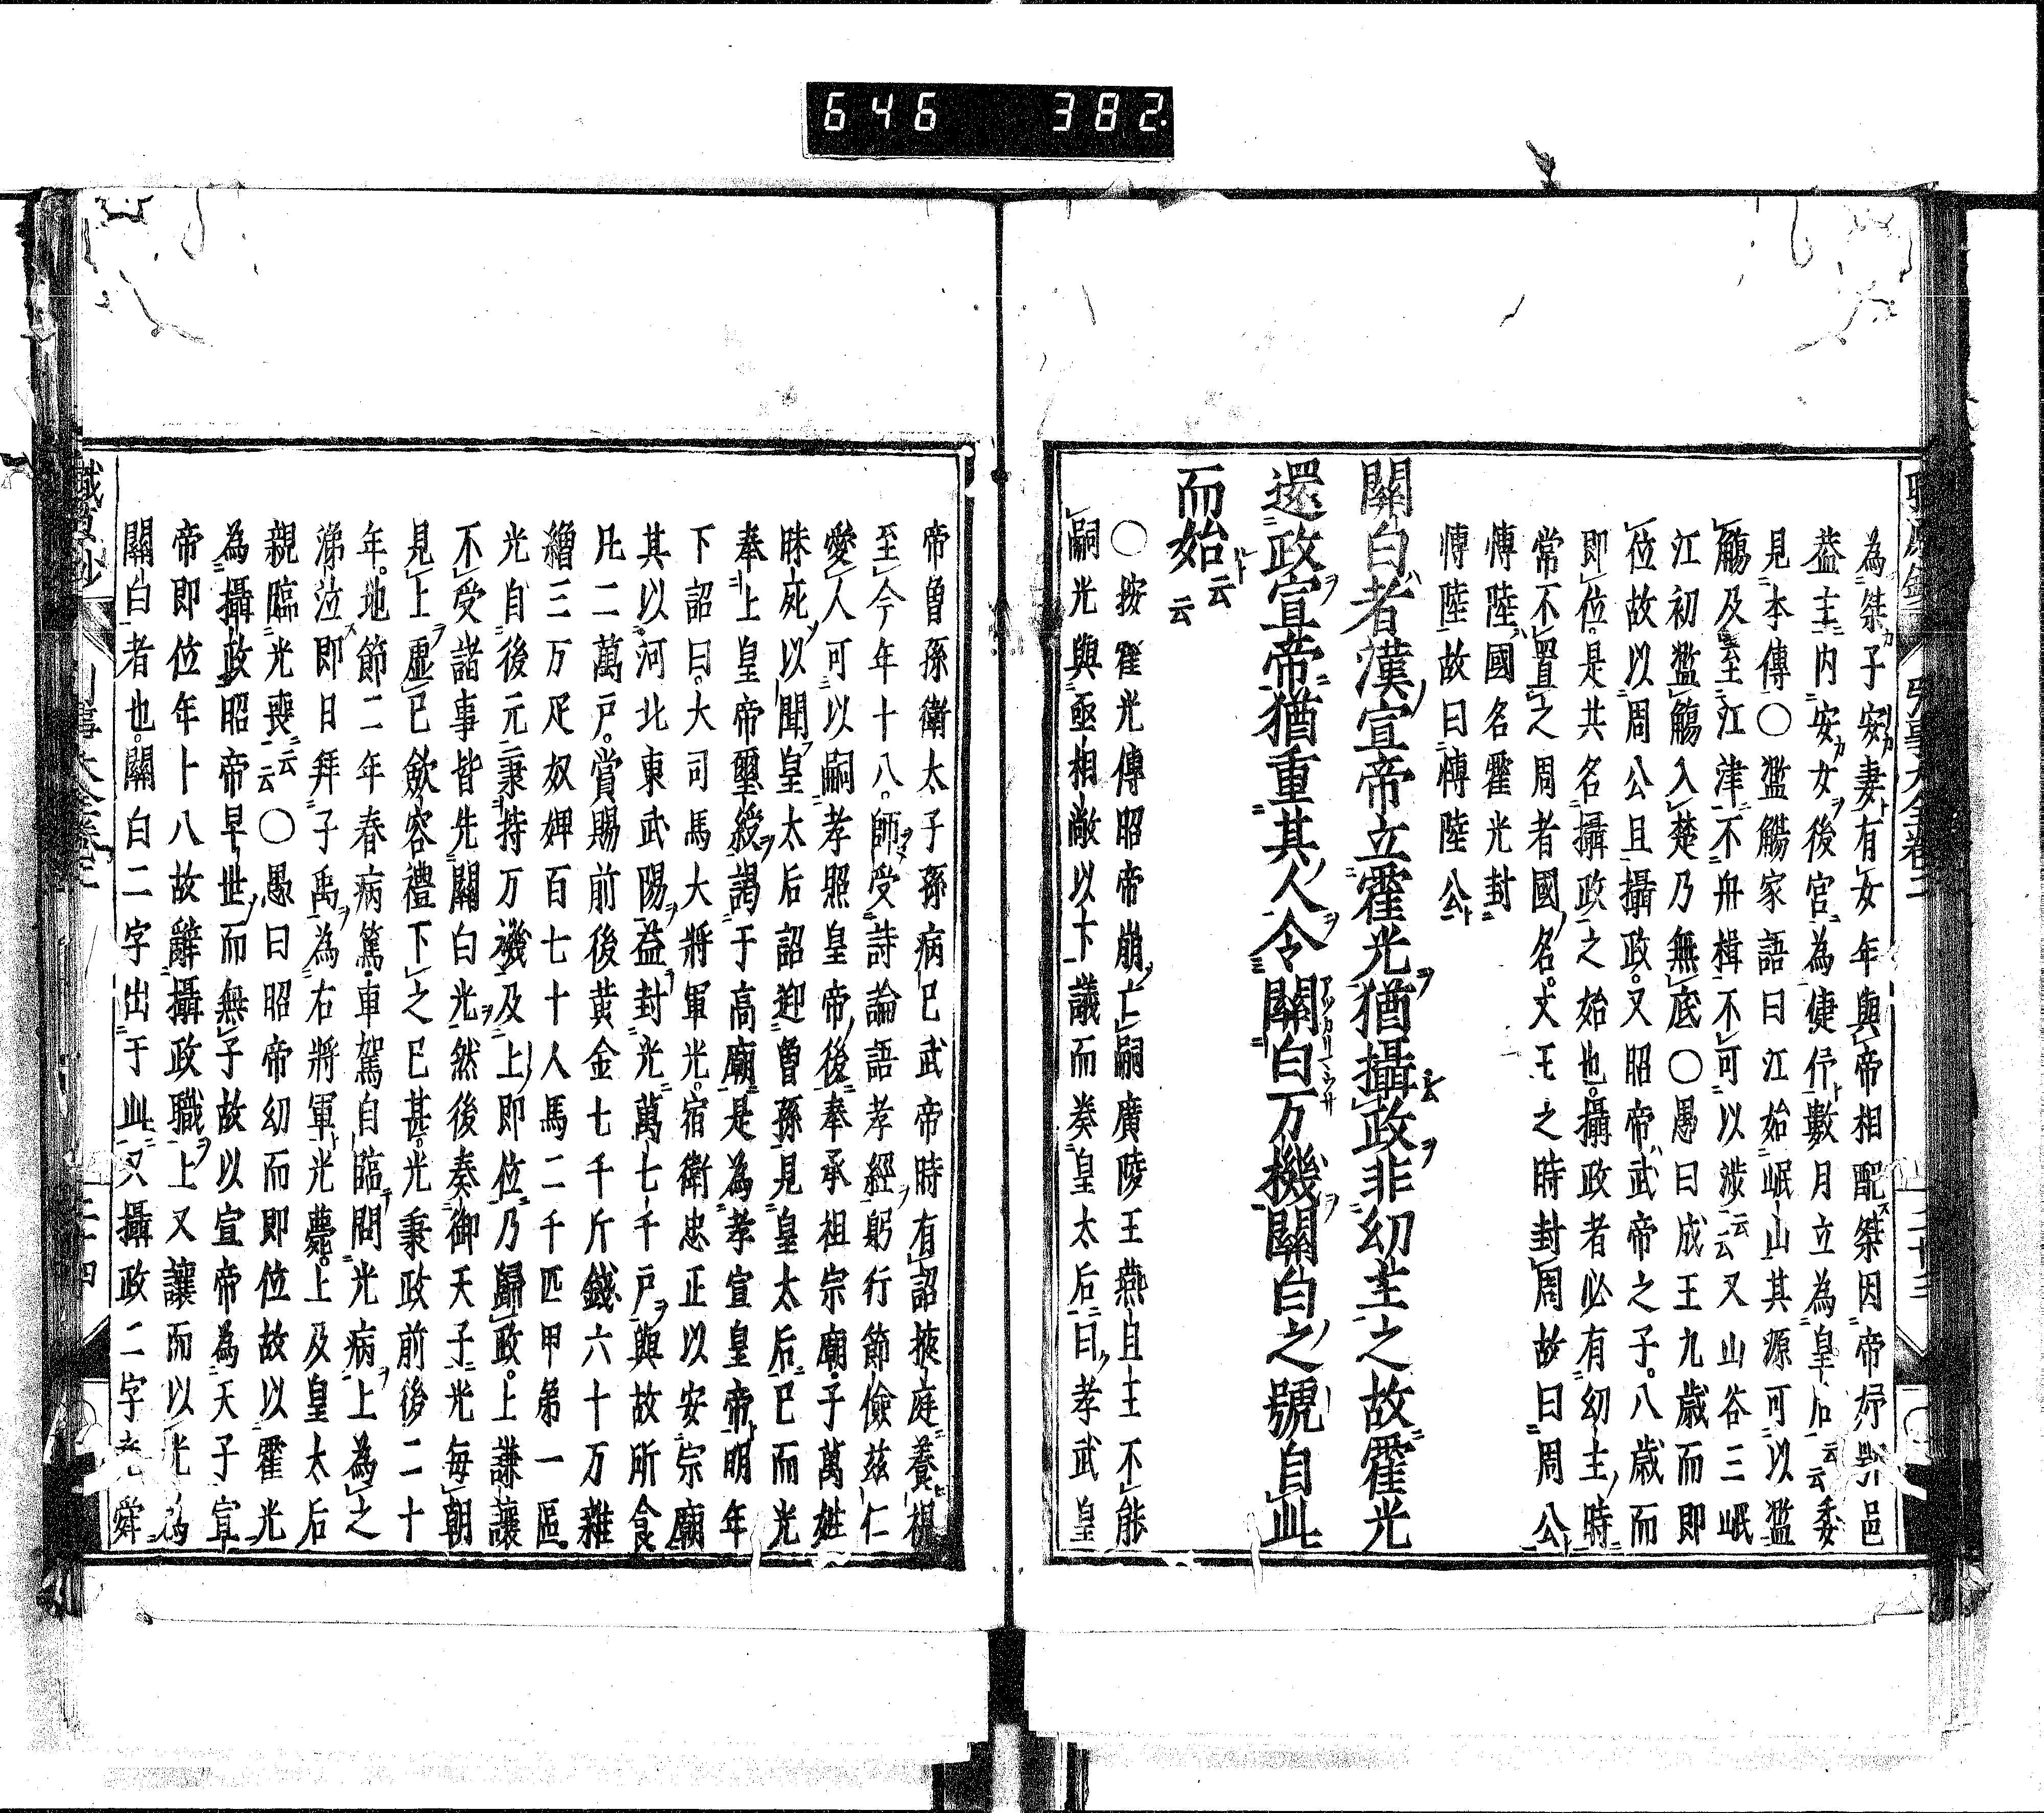 646 382
為桀子安妻有女年與帝相配桀因帝姊鄂邑
蓋主內安女後宮為倢伃數月立為皇后云云委
見本傳〇濫觴家語曰江始岷山其源可以濫
觴及至江津不舟楫不可以涉云云又山谷三岷
江初濫觴入楚乃無底〇愚曰成王九歲而即
位故以周公且攝政又昭帝武帝之子八歲而
即位是其名攝政之始也攝政者必有幼主時
常不置之周者國名丈王之時封周故曰周公
愽陸國名霍光封
愽陸故曰愽陸公
關白者漢宣帝立霍光猶攝政非幼主之故霍光
還政宣帝猶重其人令關白万機關白之號自此
而始云云
〇按霍光傳昭帝崩亡嗣廣陵王燕且王不能
嗣光與亟相敞以下議而奏皇太后曰孝武皇
帝曾孫衛太子孫病已武帝時有詔掖庭養視
至今年十八師受詩論語孝經躬行節儉茲仁
愛人可以嗣孝照皇帝後奉承祖宗廟子萬姓
昧死以聞皇太后詔迎曾孫見皇太后已而光
奉上皇帝璽綬謁于高廟是為孝宣皇帝明年
下詔曰大司馬大將軍光宿衛忠正以安宗廟
其以河北東武陽益封光萬七千戶與故所食
凡二萬戶賞賜前後黃金七千斤錢六十万雜
繒三万疋奴婢百七十人馬二千匹甲第一區
光自後元秉持万機及上即位乃歸政上謙讓
不受諸事皆先關白光然後奏御天子光每朝
見上虛已斂容禮下之已甚光秉政前後二十
年地節二年春病篤車駕自臨問光病上為之
涕泣即日拜子禹為右將軍光薨上及皇太后
親臨光喪云云〇愚曰昭帝幼而即位故以霍光
為攝政昭帝早世而無子故以宣帝為天子宣
帝即位年十八故辭攝政職上又讓而以光為
關白者也關白二字出于此又攝政二字堯舜